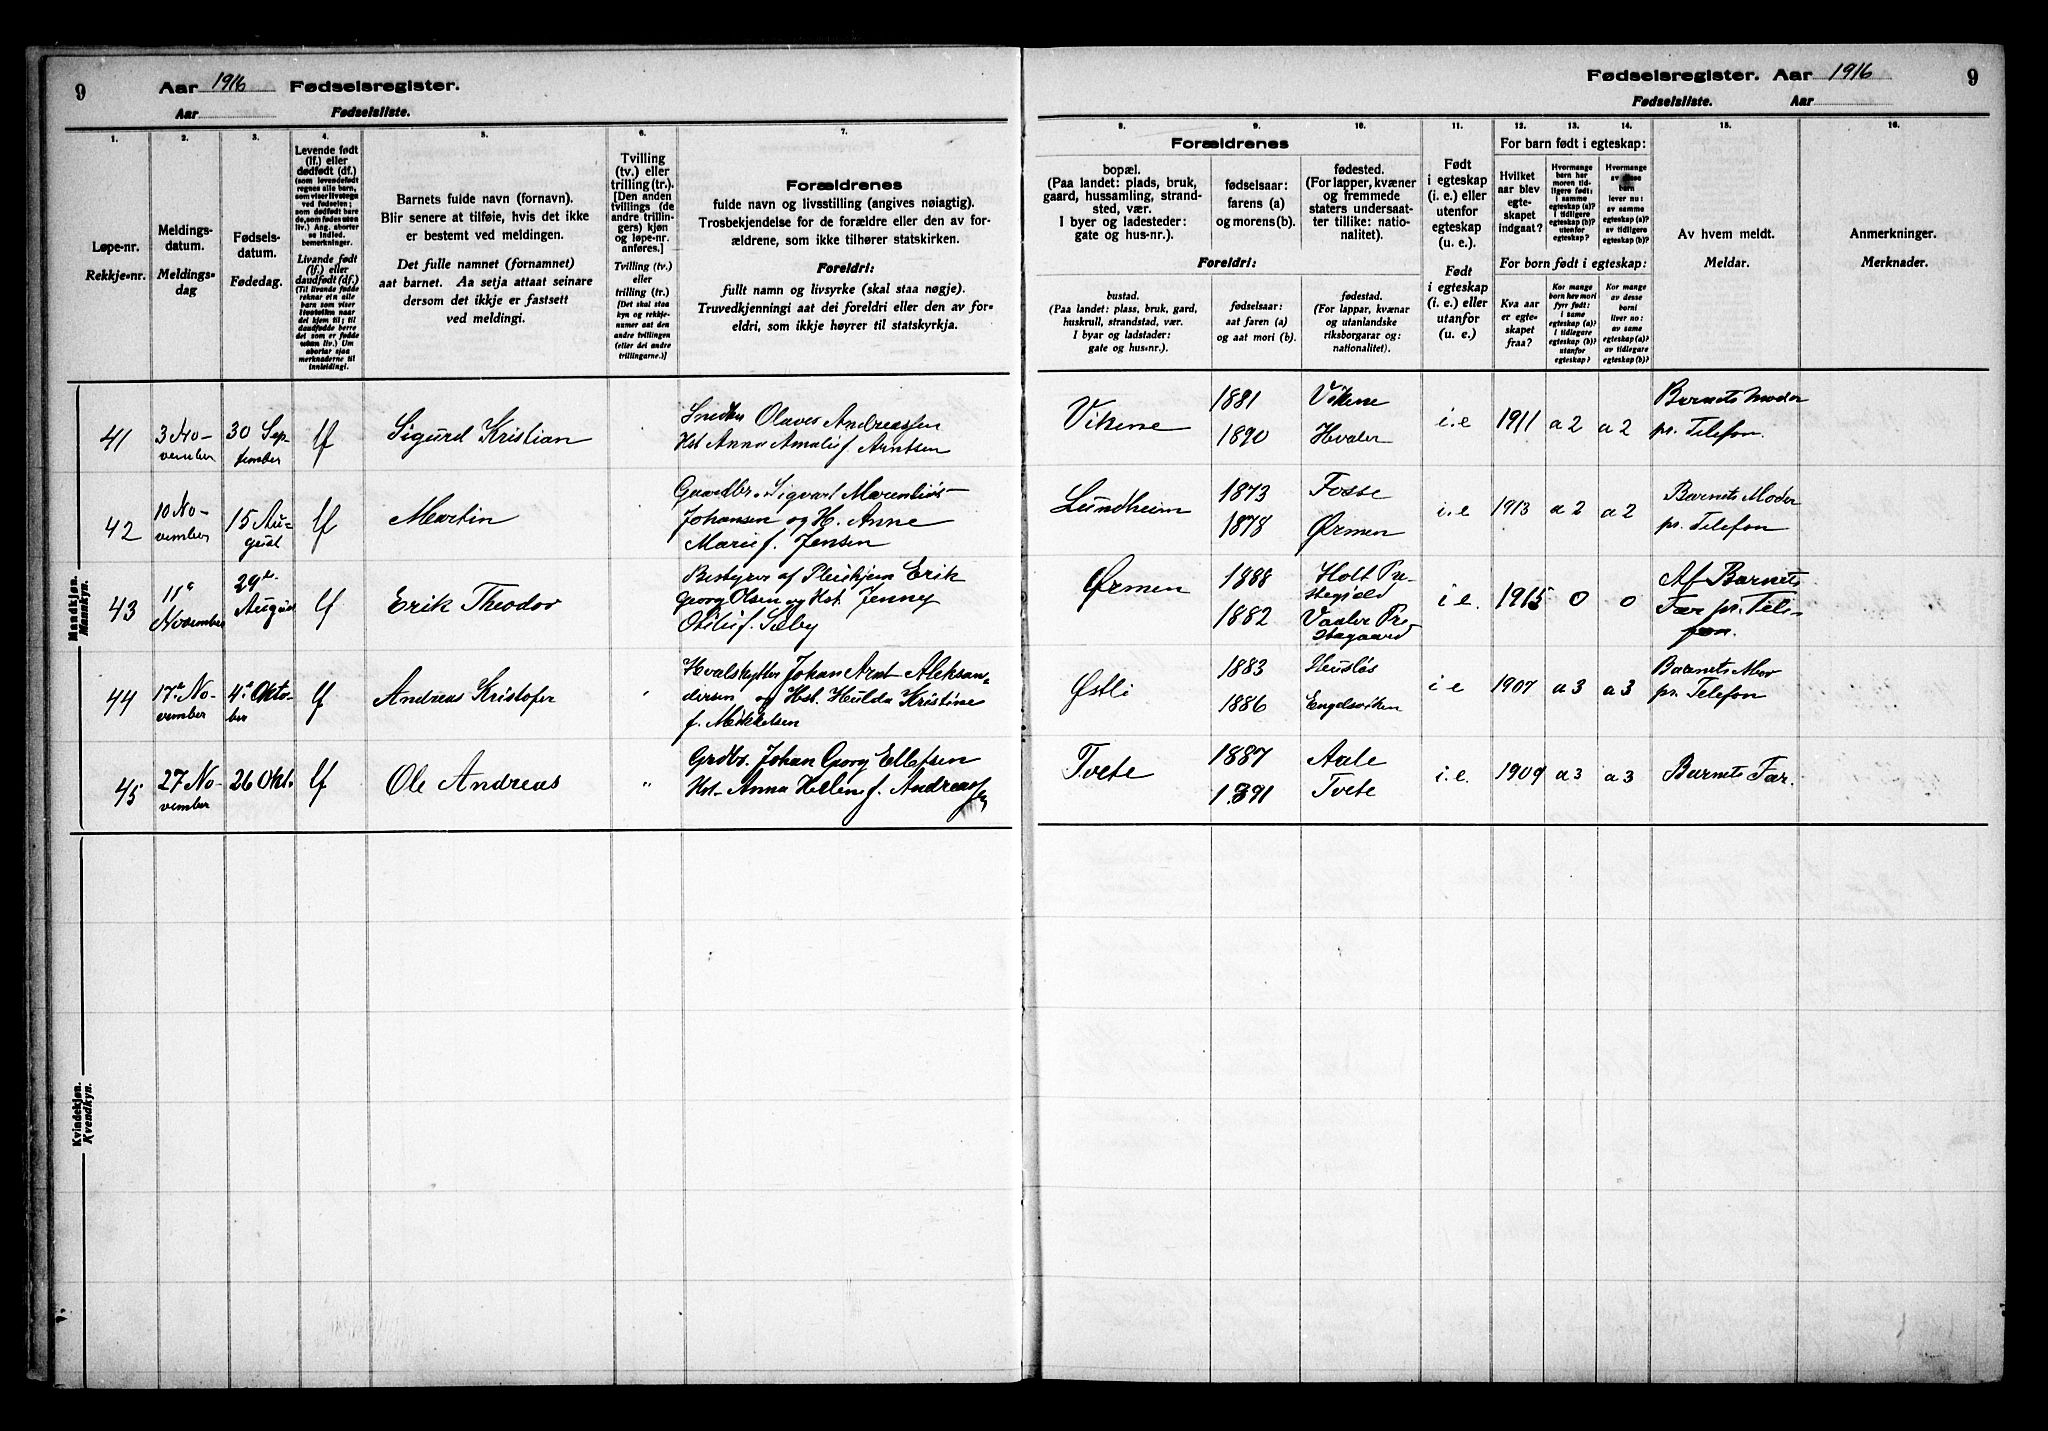 9 Aar 1916 Fødselsregister.
Aar Fødselsliste.
Fødselsregister. Aar 1916 9
Fødselsliste. Aar
1. 2. 3. 4. 5. 6. 7.
Løpe-nr.
Rekkje-nr.
Meldings-
datum.
Meldings-
dag
Fødsels-
datum.
Fødedag.
Levende født
(lf.) eller
dødfødt (df.)
(som levendefødt
regnes alle barn,
som viser livstegn
ved fødselen;
som dødfødt bare
de, som fødes uten
liv.) Ang. aborter
se indled.
bemerkninger.
Livande født
(lf.) eller
daudfødt (df.)
(Til livande fødde
reknar ein alle
born som viser
livsteikn naar
dei kjem til; til
daudfødde berre
dei som er fødde
utan liv.) Um
abortar sjaa
merknaderne til
innleiding!
Barnets fulde navn (fornavn).
Blir senere at tilføie, hvis det ikke
er bestemt ved meldingen.
Det fulle namnet (fornamnet)
aat barnet. Aa setja attaat seinare
dersom det ikkje er fastsett
ved meldingi.
Tvilling
(tv.) eller
trilling (tr.).
[Den anden
tvillings (de
andre trillin-
gers) kjøn
og løpe-nr.
anføres.]
Tvilling (tv.)
eller
trilling (tr.)
[Det skal staa
kyn og rekkje-
numer aat den
andre tvillingen
(eller dei andre
trillingarne.)]
Forældrenes
fulde navn og livsstilling (angives nøiagtig).
Trosbekjendelse for de forældre eller den av for-
ældrene, som ikke tilhører statskirken.
Foreldri:
fullt namn og livsyrke (skal staa nøgje).
Truvedkjenningi aat dei foreldri eller den av for-
eldri, som ikkje høyrer til statskyrkja.
8. 9. 10. 11. 12. 13. 14. 15. 16.
Forældrenes
bopæl.
(Paa landet: plads, bruk,
gaard, hussamling, strand-
sted, vær.
I byer og ladesteder:
gate og hus-nr.).
fødselsaar:
farens (a)
og morens (b).
fødested.
(For lapper, kvæner
og fremmede
staters undersaat-
ter tillike: natio-
nalitet).
Foreldri:
bustad.
(Paa landet: plass, bruk, gard,
huskrull, strandstad, vær.
I byar og ladstader:
gate og hus-nr.).
fødselsaar:
aat faren (a)
og aat mori (b).
fødestad.
(For lappar, kvænar
og utanlandske
riksborgarar og:
nationalitet).
Født
i egteskap
(i. e.) eller
utenfor
egteskap
(u. e.).
Født
i egteskap
(i. e.) eller
utanfor
(u. e.).
For barn født i egteskap:
Hvilket
aar blev
egte-
skapet
indgaat?
Hvormange
barn har
moren tid-
ligere født:
i samme
egteskap (a)?
i tidligere
egteskap (b)?
utenfor
egteskap?
Hvormange
av disse
barn
lever nu:
av samme
egteskap (a)?
av tidligere
egteskap (b)?
For born født i egteskap:
Kva aar
er egte-
skapet
fraa?
Kor mange
born hev mori
fyrr født:
i same
egteskap (a)?
i tidlegare
egteskap (b)?
utanfor
egteskap?
Kor mange
av desse
borni
liver no:
av same
egteskap (a)?
av tidlegare
egteskap (b)?
Av hvem meldt.
Meldar.
Anmerkninger.
Merknader.
Mandkjøn.
Mannkyn.
41 3 No-
vember 30 Sep-
tember lf Sigurd Kristian Snedker Olaves Andreassen
Hst Anna Amalie f. Arntsen Vikene 1881 Vikene
1890 Hvaler i.e 1911 a 2 a 2 Barnets Moder
pr. Telefon.
42 10 No-
vember 15 Au-
gust lf Martin Gaardbr. Sigvart Marentius
Johansen og H. Anne
Marie f. Jensen Lundheim 1873 Fosse
1878 Ørmen i.e 1913 a 2 a 2 Barnets Moder
pr. Telefon
43 11te
November 29de
August lf Erik Theodor Bestyrer af Pleiehjem Erik
Georg Olsen og Hst. Jenny
Otilie f. Sæby Ørmen 1888 Holt Pre-
stegjeld
1882 Vaaler Pre-
stegaard i e. 1915 0 0 Af Barnets
Far pr. Tele-
fon.
44 17de No-
vember 4de Okto-
ber lf Andreas Kristofer " Hvalskytter Johan Arnt Aleksan-
dersen og Hst. Hulda Kristine
f. Mikkelsen Østli 1883 Husløs
1886 Engelsviken i e 1907 a 3 a 3 Barnets Mor
pr. Telefon
45 27 No-
vember 26 Okt. lf Ole Andreas " Grdbr. Johan Georg Ellefsen
Hst. Anna Helene f. Andreassen Tvete 1887 Aale
1891 Tvete i. e. 1909 a 3 a 3 Barnets Far.
Kvindekjøn.
Kvendkyn.